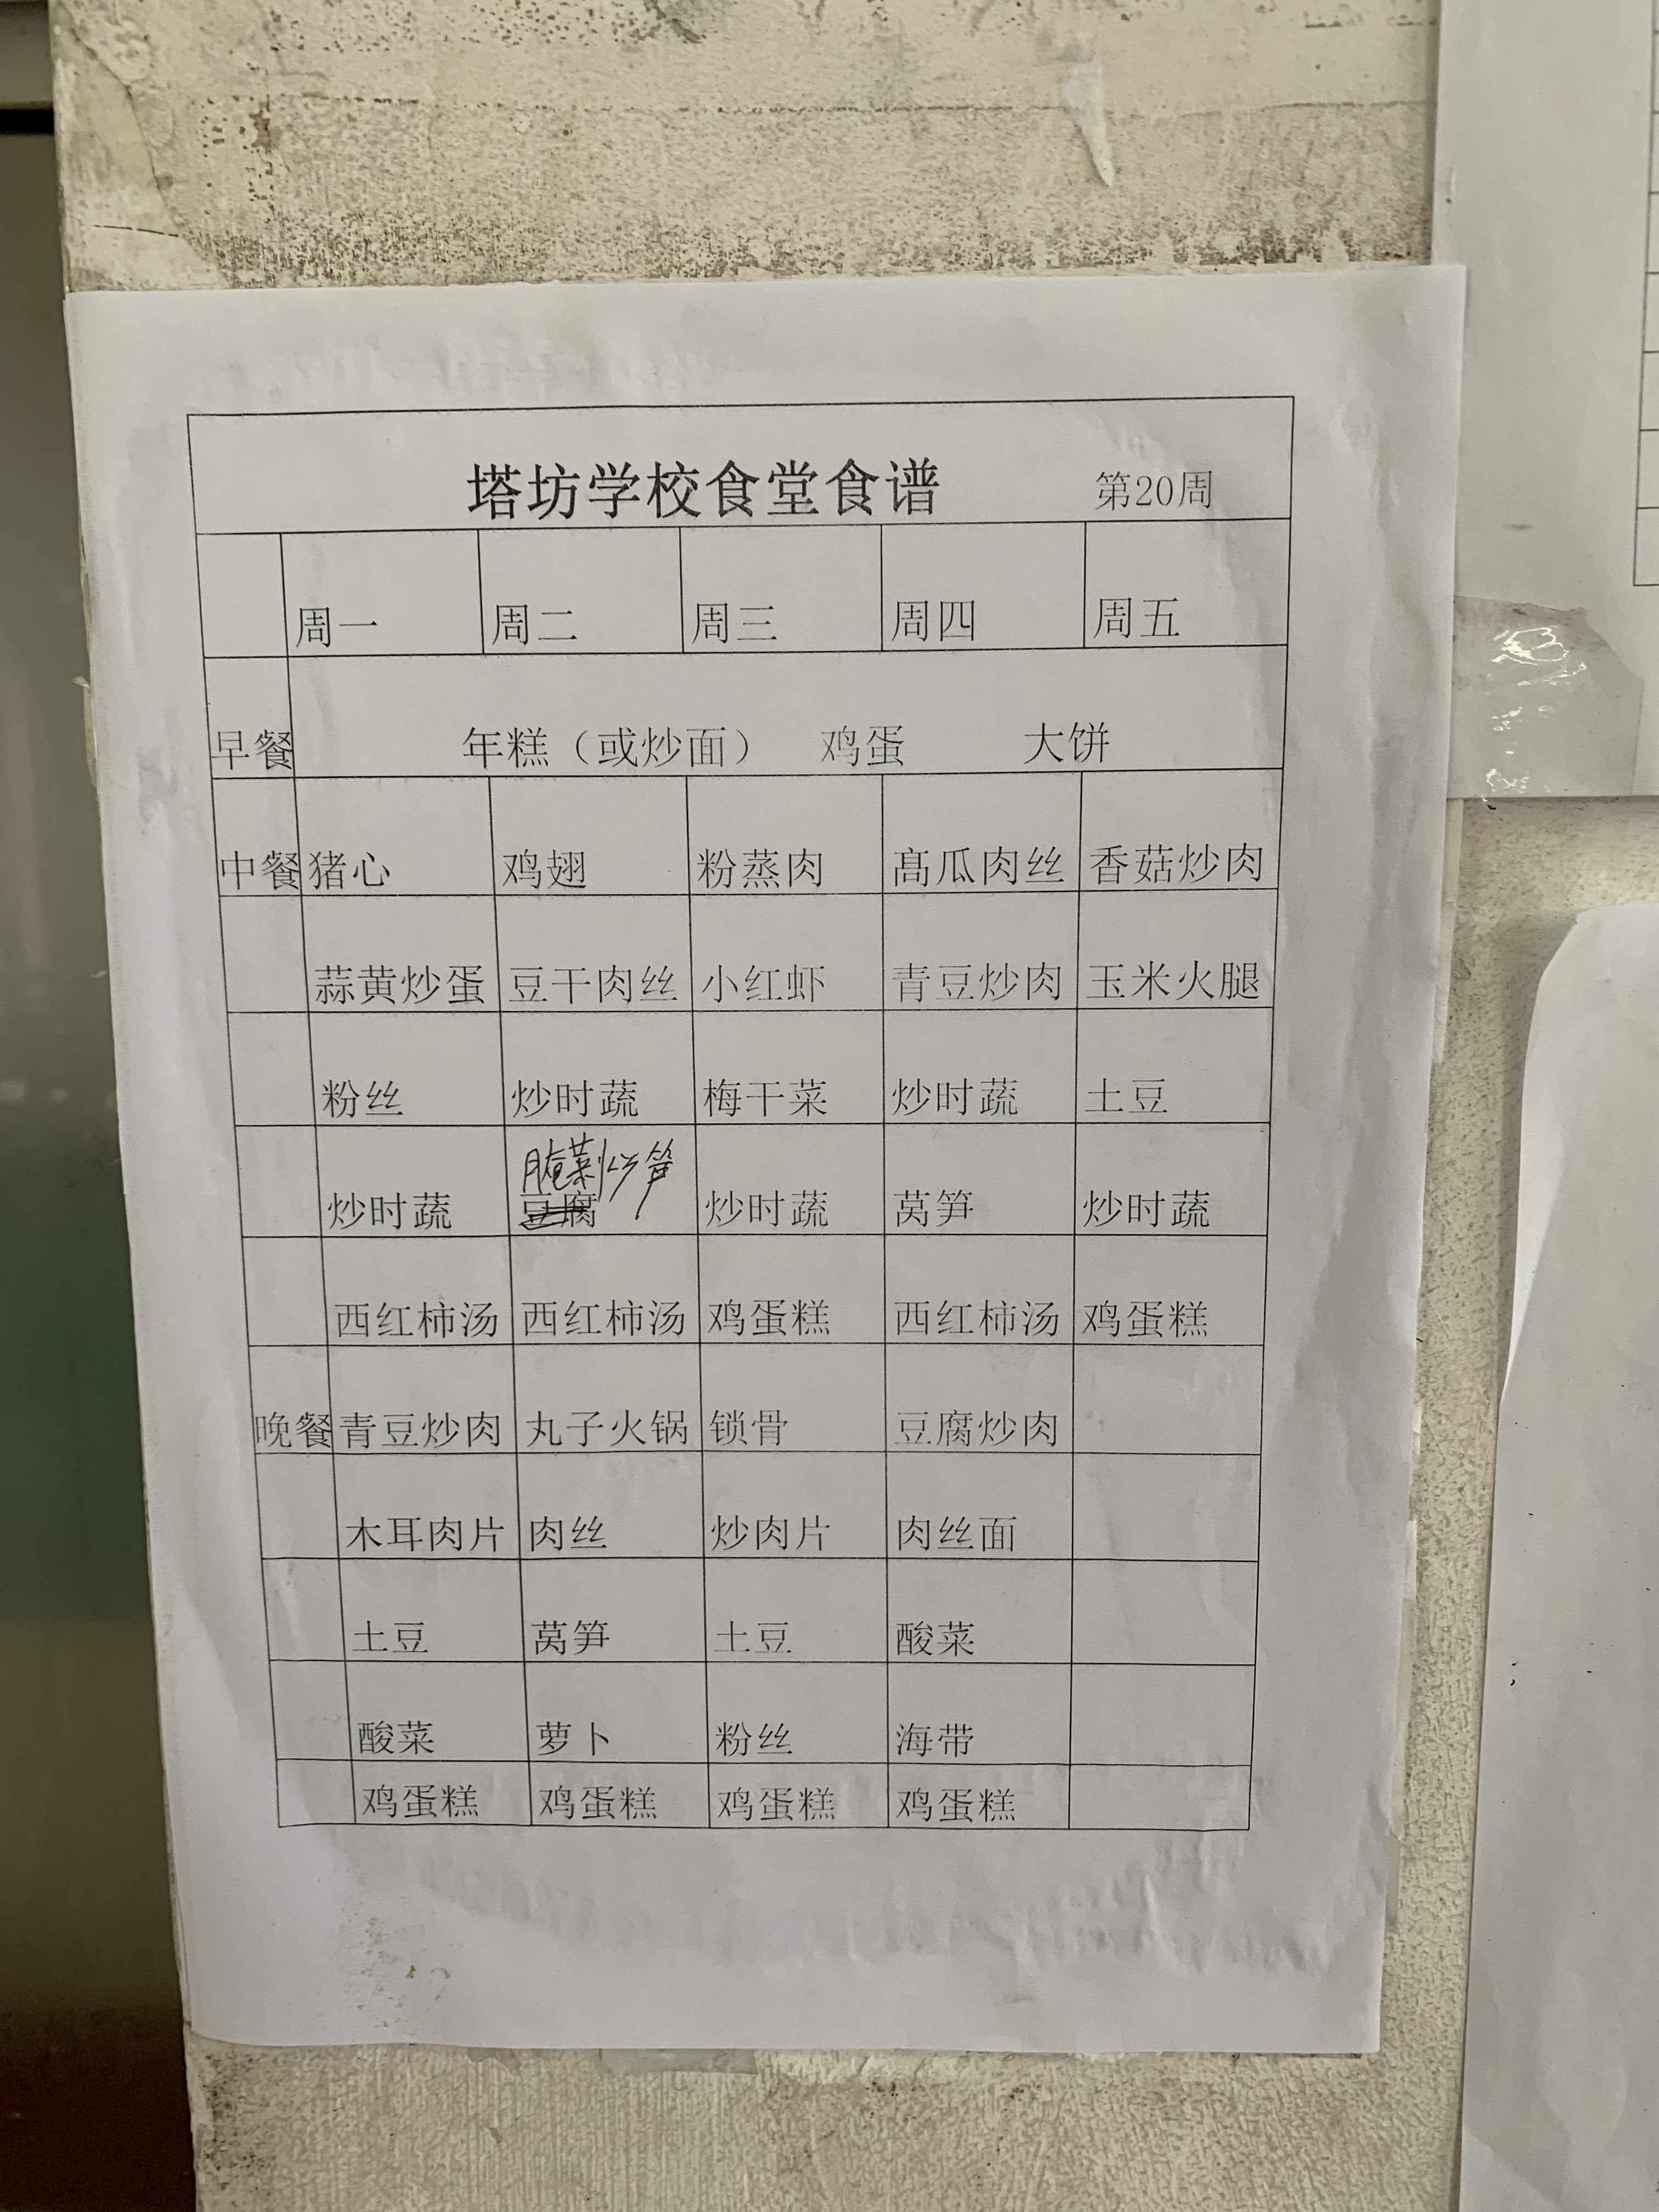 塔坊学校食堂食谱 第20周
周一 周二 周三 周四 周五
早餐 年糕（或炒面） 鸡蛋 大饼
中餐 猪心 鸡翅 粉蒸肉 高瓜肉丝 香菇炒肉
蒜黄炒蛋 豆干肉丝 小红虾 青豆炒肉 玉米火腿
粉丝 炒时蔬 梅干菜 炒时蔬 土豆
腌菜炒笋
炒时蔬 豆腐 炒时蔬 莴笋 炒时蔬
西红柿汤 西红柿汤 鸡蛋糕 西红柿汤 鸡蛋糕
晚餐 青豆炒肉 丸子火锅 锁骨 豆腐炒肉
木耳肉片 肉丝 炒肉片 肉丝面
土豆 莴笋 土豆 酸菜
酸菜 萝卜 粉丝 海带
鸡蛋糕 鸡蛋糕 鸡蛋糕 鸡蛋糕